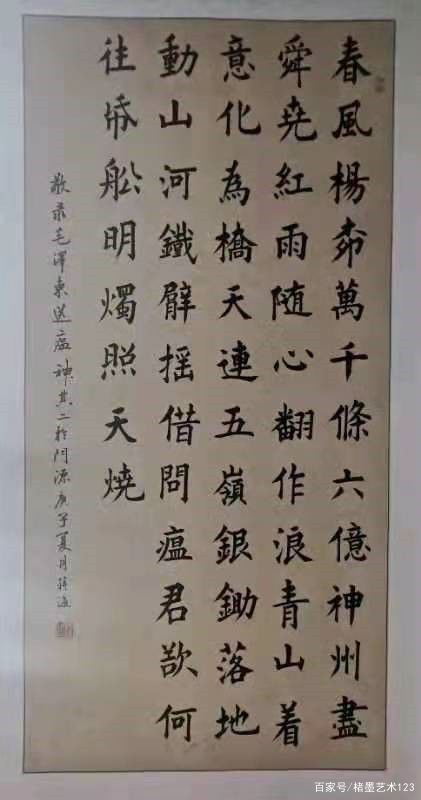 春風楊柳萬千條六億神州盡
舜堯紅雨随心翻作浪青山着
意化為橋天連五嶺銀鋤落地
動山河鐵臂摇借問瘟君欲何
往帋船明燭照天燒
敬录毛澤東送瘟神其二於門源庚子夏月蒋海
百家号/楮墨艺术123